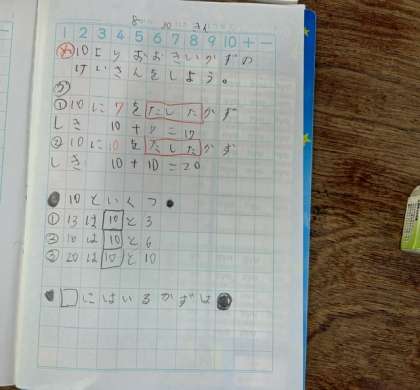 8
10 さん
1 2 3 4 5 6 7 8 9 10 + −
め 10よりおおきいかずの
けいさんをしよう。
①10に7をたしたかず
しき 10+7=17
②10に10をたしたかず
しき 10+10=20
10といくつ
①13は10と3
②16は10と6
③20は10と10
□にはいるかずは